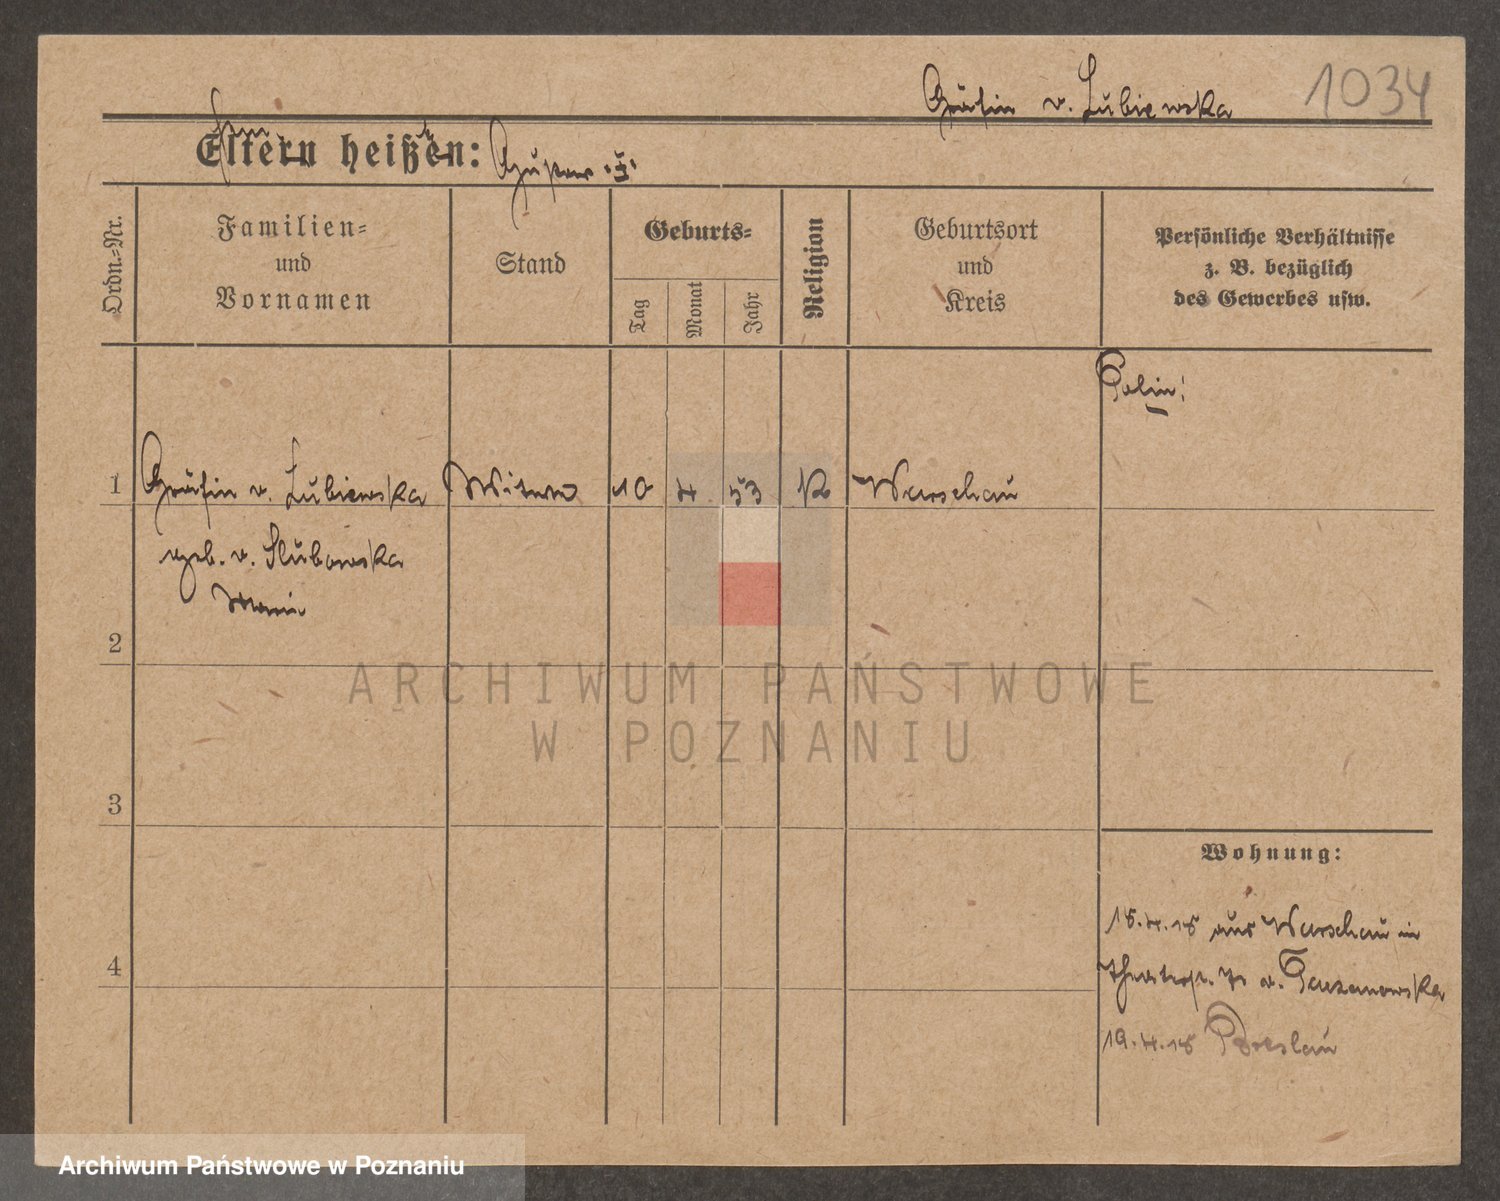 Gräfin v. Lubiewska 1034
Eltern heißen: Gustav
Ordn.-Nr.
Familien-
und
Vornamen
Stand
Geburts-
Tag
Monat
Jahr
Religion
Geburtsort
und
Kreis
Persönliche Verhältnisse
z. B. bezüglich
des Gewerbes usw.
Polin!
1 Gräfin v. Lubiewska Witwe 10 4 53 K Warschau
geb. v. Slubowska
Marie
2
3
4
ARCHIWUM PAŃSTWOWE
W POZNANIU
Wohnung:
15.4.15 aus Warschau in
Theaterstr. v.
19.4.15 Breslau
Archiwum Państwowe w Poznaniu